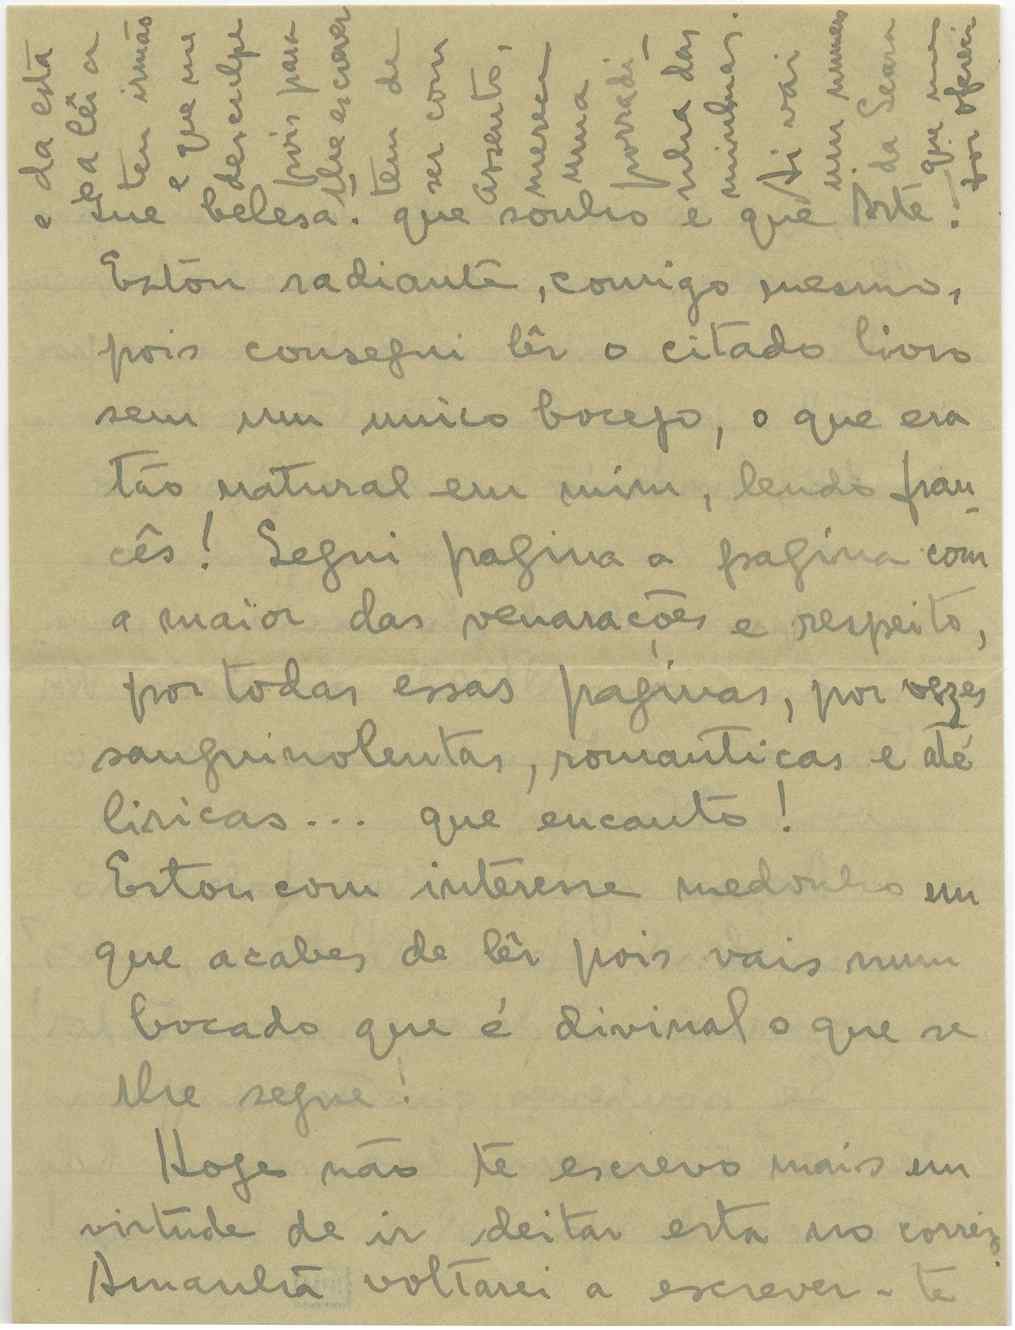 Que belesa! que sonho e que Arte!
Estou radiante, comigo mesmo,
pois consegui lêr o citado livro
sem um unico bocejo, o que era
tão natural em mim, lendo fran-
cês! Segui pagina a pagina com
a maior das venarações e respeito,
por todas essas paginas, por vezes
sanguinolentas, romanticas e até
liricas... que encanto!
Estou com interesse medonho em
que acabes de lêr pois vais num
bocado que é divinal o que se
lhe segue!
Hoje não te escrevo mais em
virtude de ir deitar esta no correio.
Amanhã voltarei a escrever-te
e da está
pa lêr a
teu irmão
e que me
desculpe
pois para
lhe escrever
tem de
ser com
assento,
merece
uma
porradi-
nha das
minhas.
Ai vai
um numero
da Seara
que me
foi ofereci